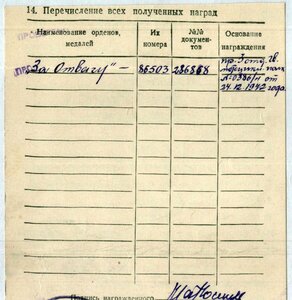 14. Перечисление всех полученных наград
Наименование орденов, медалей
Их номера
№№ документов
Основание награждения
„За Отвагу" —
86503
286868
пр.
гв.
№0386/н от
24.12.1942 года.
Подпись награжденного